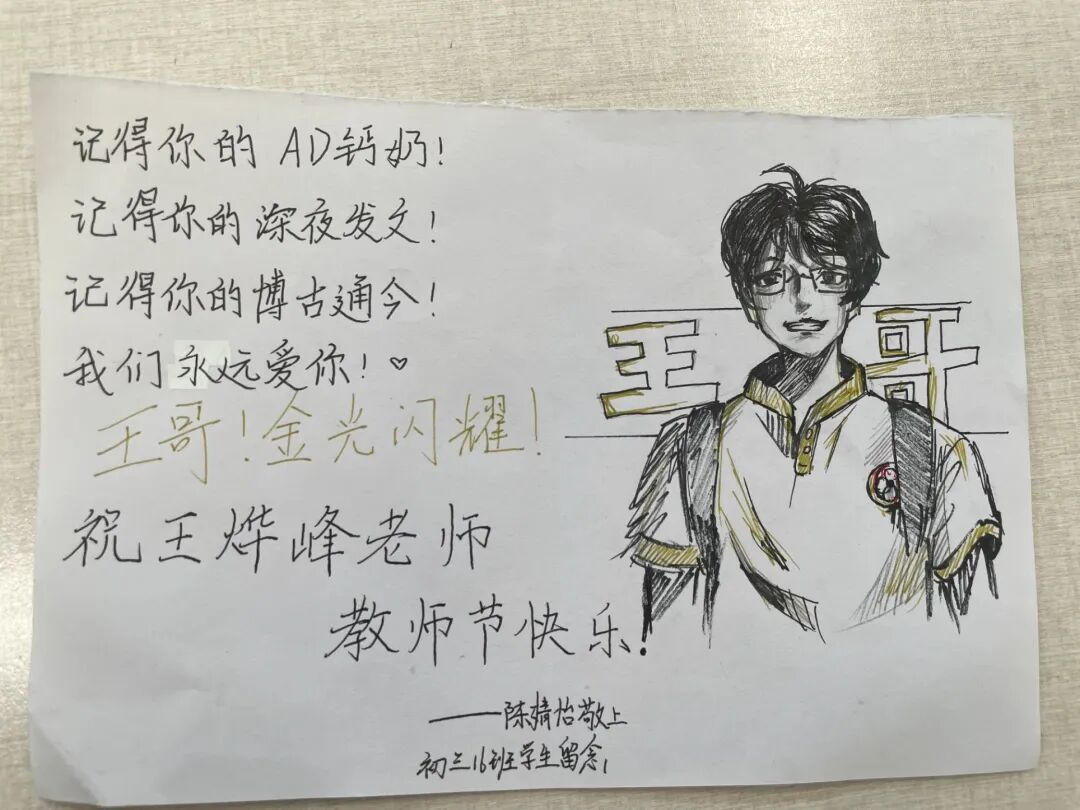 记得你的 AD钙奶!
记得你的深夜发文!
记得你的博古通今!
我们永远爱你!♡
王哥!金光闪耀!
王哥
祝王烨峰老师
教师节快乐!
——陈婧怡敬上
初三16班学生留念